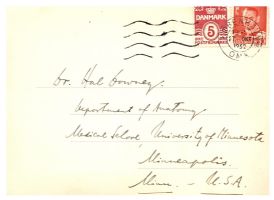 DANMARK
5
Dr. Hal Downey.
Department of Anatomy
Medical School, University of Minnesota
Minneapolis
Minn. - U.S.A.